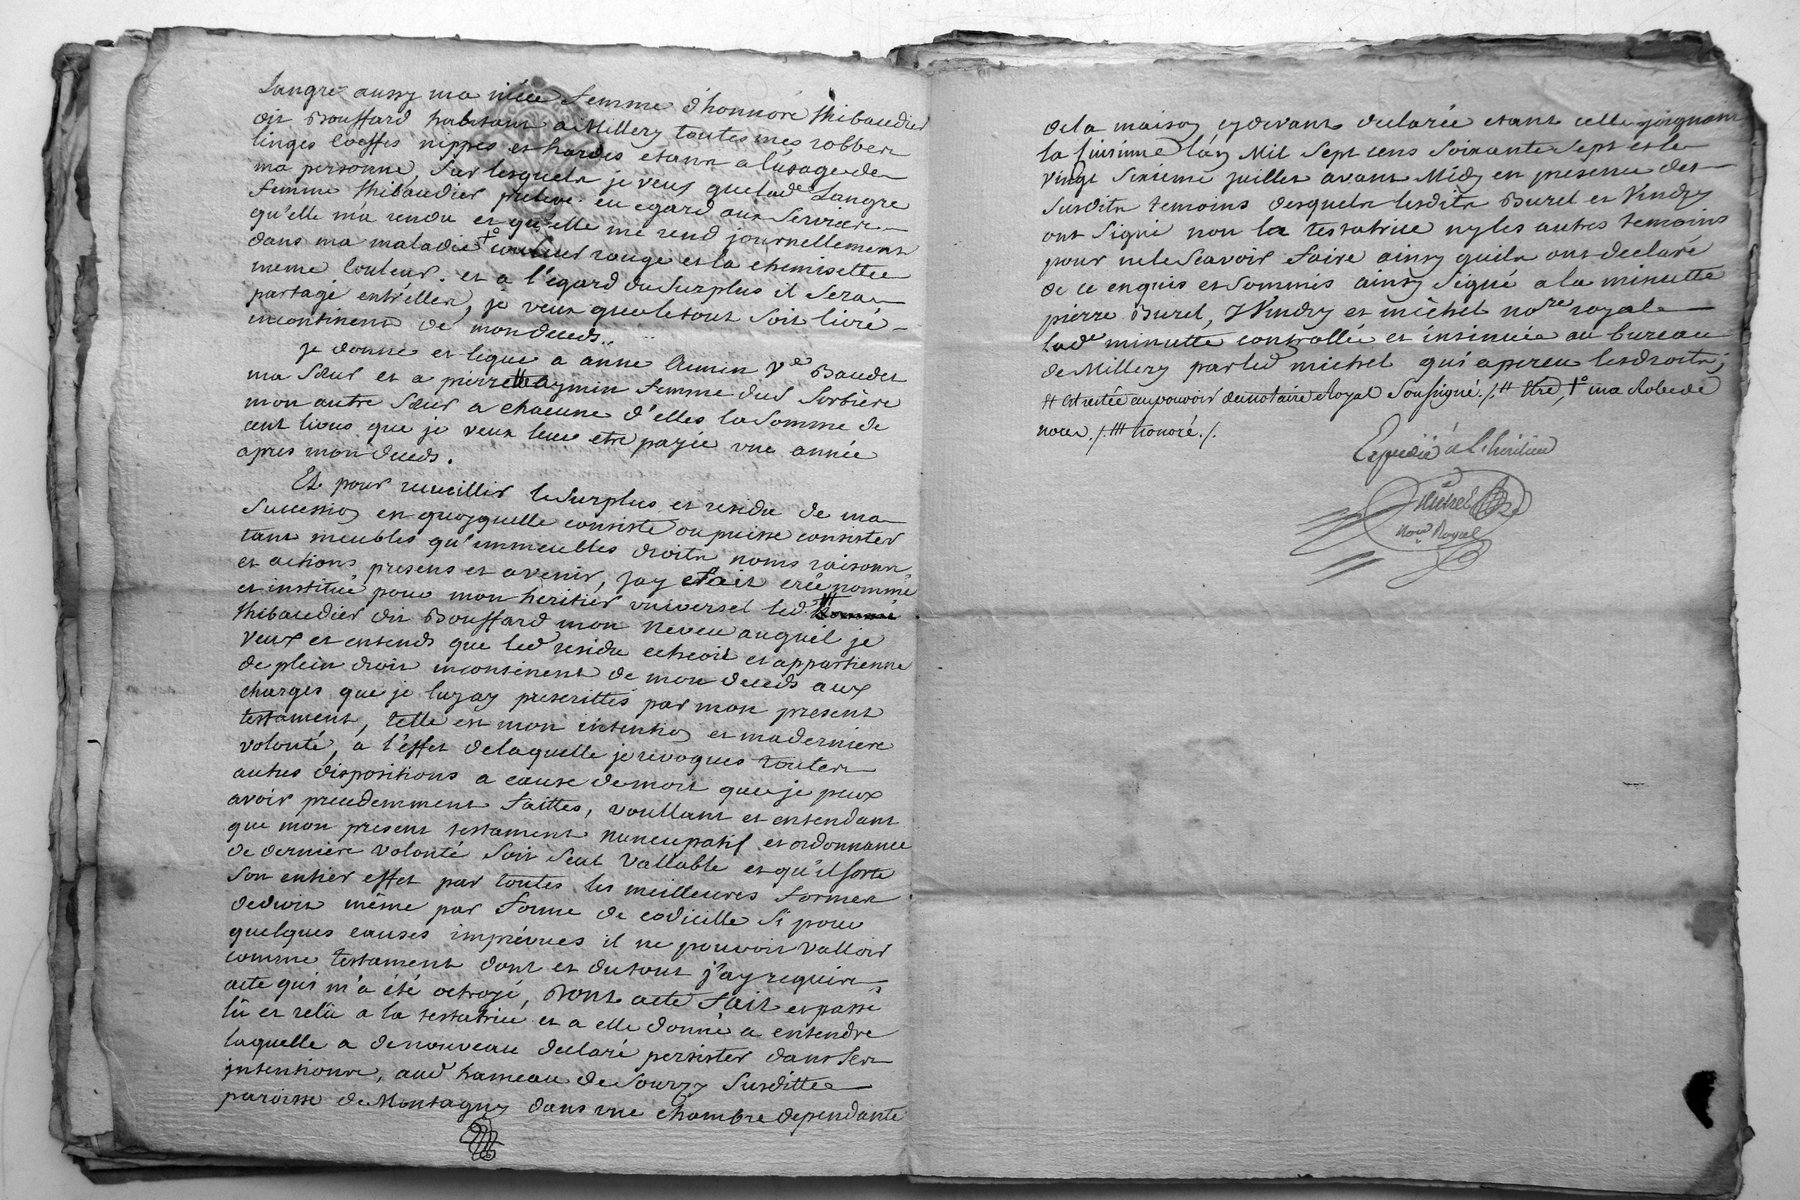 Langre aussy ma niéce femme d'honnoré thibaudier
dit Bouffard habitant a Millery toutes mes robbes
linges coeffes nippes et hardes etant a l'usage de
ma personne, sur lesquels je veux que lade Langre
femme thibaudier préleve en egard aux services
qu'elle m'a rendu et qu'elle me rend journellement
dans ma maladie +° couleur rouge et la chemisette
meme couleur. et a l'égard du surplus il sera
partagé entr'elles, je veux que le tout soit livré
incontinent de mon deceds..
Je donne et legue a anne Aimin Ve Baudet
ma sœur et a pierrette aymin femme dud Sorbiere
mon autre sœur a chacune d'elles la somme de
cent livres que je veux leur etre payée une année
apres mon deceds.
Et pour recueillir le surplus et residu de ma
succession en quoyquelle consiste ou puisse consister
tant meubles qu'immeubles droits noms raisons
et actions presens et avenir, jay fait créé nommé
et institué pour mon heritier universel led. #
thibaudier dit Bouffard mon neveu auquel je
veux et entends que led residu echeoit et appartienne
de plein droit incontinent de mon deceds aux
charges que je luy ay prescrittes par mon present
testament, telle est mon intention et ma derniere
volonté, à l'effet delaquelle je revoques toutes
autres dispositions a cause de mort que je peux
avoir precedemment faittes, voullant et entendant
que mon present testament nuncupatif et ordonnance
de derniere volonté soit seul vallable et qu'il sorte
son entier effet par toutes les meilleures formes
de droit même par forme de codicille si pour
quelques causes imprévues il ne pouvoit valloir
comme testament dont et du tout j'ay requis
acte qui m'a été octroyé, Dont acte fait et passé
lû et relû a la testatrice et a elle donné a entendre
laquelle a de nouveau declaré persister dans ses
intentions, aud hameau de Sourzy susditte
paroisse de Montagny dans une chambre dependante
de la maison cydevant declarée etant celle joignant
la cuisinne l'an Mil sept cens soixante sept et le
vingt sixieme juillet avant Midy en presence des
susdits temoins desquels lesdits Burel et Vindry
ont signé non la testatrice ny les autres temoins
pour ne le scavoir faire ainsy quils ont declaré
de ce enquis et sommés ainsy signé a la minutte
pierre Burel, J Vindry et michel nore royal
lade minutte controllée et insinuée au bureau
de Millery par led michel qui a percu les droits;
et est restée au pouvoir du notaire Royal soussigné./. # tte, +° ma Robe de
noce ./. ### honoré./.
Expedié à l'héritier
Michel
Nore Royal